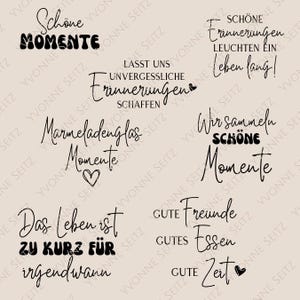 Schöne
MOMENTE
SCHÖNE
Erinnerungen
LEUCHTEN EIN
Leben lang!
LASST UNS
UNVERGESSLICHE
Erinnerungen
SCHAFFEN
Marmeladenglas
Momente
Wir sammeln
SCHÖNE
Momente
Das Leben ist
ZU KURZ FÜR
irgendwann
GUTE Freunde
GUTES Essen
GUTE Zeit
YVONNE SEITZ